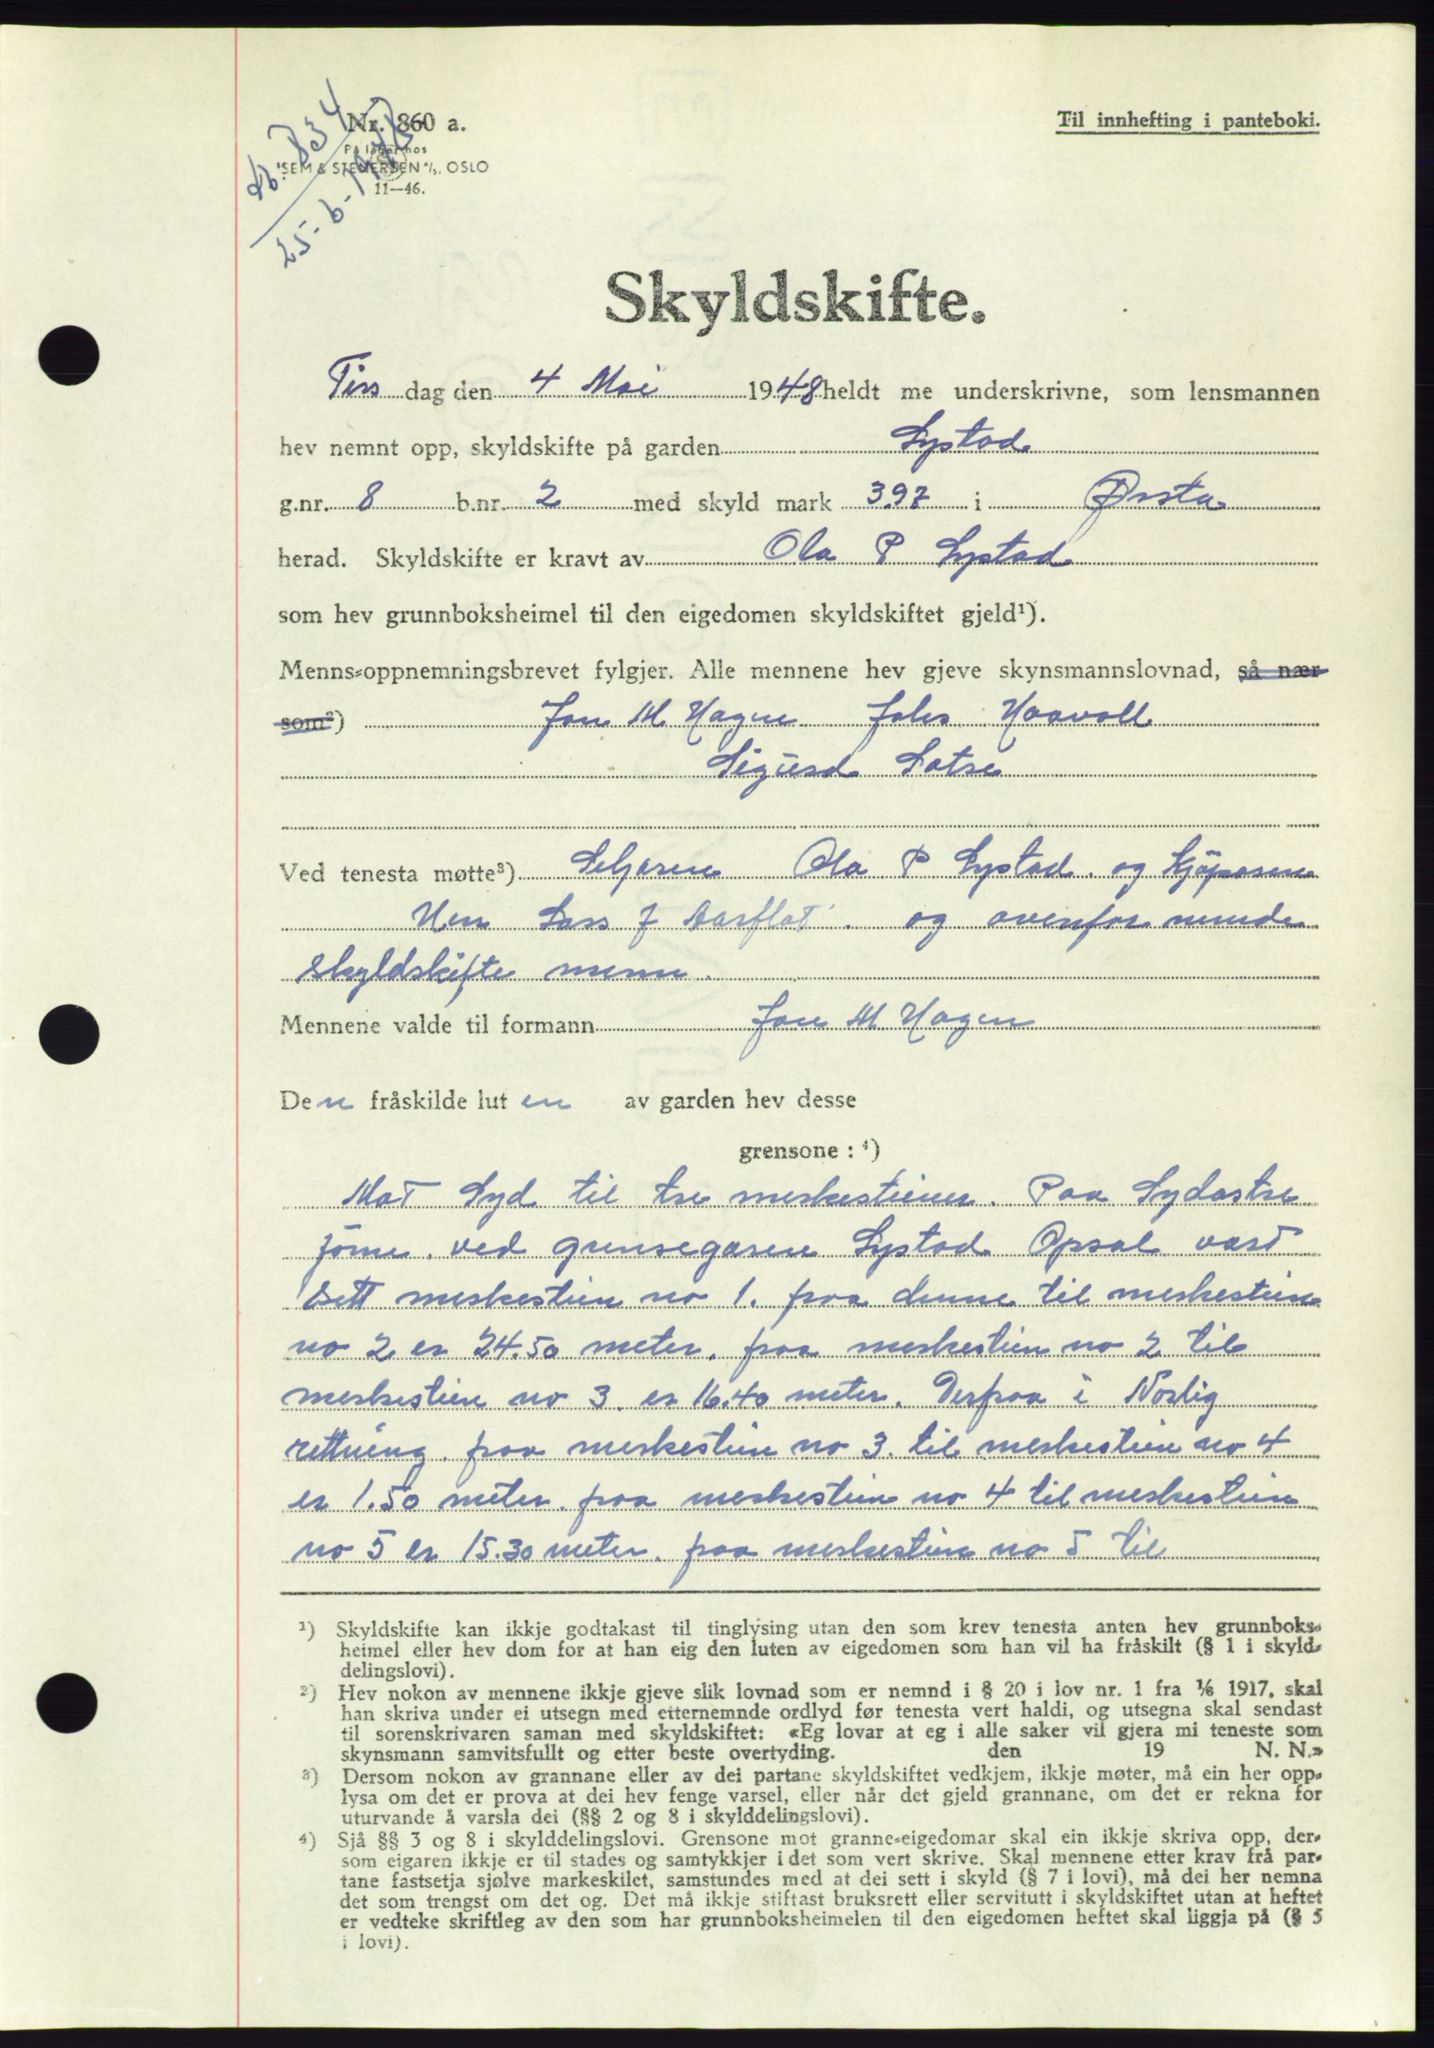 Db. 834
25-6-1948
Nr. 860 a.
På lager hos
SEM & STENERSEN A/S, OSLO
11—46.
Til innhefting i panteboki.
Skyldskifte.
Tirsdag den 4 Mai 1948 heldt me underskrivne, som lensmannen
hev nemnt opp, skyldskifte på garden Systad
g.nr. 8 b.nr. 2 med skyld mark 3.97 i Ørsta
herad. Skyldskifte er kravt av Ola P Systad
som hev grunnboksheimel til den eigedomen skyldskiftet gjeld¹).
Menns-oppnemningsbrevet fylgjer. Alle mennene hev gjeve skynsmannslovnad, så nær
som²) Jon M Hagen Johs Haavoll
Sigurd Sætre
Ved tenesta møtte³) Seljaren Ola P Systad og Kjöparen
Herr Lars J Aarflot og ovenfor nevnde
skyldskifte menn.
Mennene valde til formann Jon M Hagen
Den fråskilde luten av garden hev desse
grensone : ⁴)
Mot Syd til tre merkesteiner. Paa Sydöstre
jörne ved grensegaren Systad Opsal vart
sett merkestein no 1. fraa denne til merkestein
no 2 er 24.50 meter. fraa merkestein no 2 til
merkestein no 3 er 16.40 meter. Derfraa i Norlig
rettning fraa merkestein no 3 til merkestein no 4
er 1.50 meter. fraa merkestein no 4 til merkestein
no 5 er 15.30 meter. fraa merkestein no 5 til
¹) Skyldskifte kan ikkje godtakast til tinglysing utan den som krev tenesta anten hev grunnboks-
heimel eller hev dom for at han eig den luten av eigedomen som han vil ha fråskilt (§ 1 i skyld-
delingslovi).
²) Hev nokon av mennene ikkje gjeve slik lovnad som er nemnd i § 20 i lov nr. 1 fra 1/6 1917, skal
han skriva under ei utsegn med etternemnde ordlyd før tenesta vert haldi, og utsegna skal sendast
til sorenskrivaren saman med skyldskiftet: «Eg lovar at eg i alle saker vil gjera mi teneste som
skynsmann samvitsfullt og etter beste overtyding. den 19 N. N.»
³) Dersom nokon av grannane eller av dei partane skyldskiftet vedkjem, ikkje møter, må ein her opp-
lysa om det er prova at dei hev fenge varsel, eller når det gjeld grannane, om det er rekna for
uturvande å varsla dei (§§ 2 og 8 i skylddelingslovi).
⁴) Sjå §§ 3 og 8 i skylddelingslovi. Grensone mot granne-eigedomar skal ein ikkje skriva opp, der-
som eigaren ikkje er til stades og samtykkjer i det som vert skrive. Skal mennene etter krav frå par-
tane fastsetja sjølve markeskilet, samstundes med at dei sett i skyld (§ 7 i lovi), må dei her nemna
det som trengst om det og. Det må ikkje stiftast bruksrett eller servitutt i skyldskiftet utan at heftet
er vedteke skriftleg av den som har grunnboksheimelen til den eigedomen heftet skal liggja på (§ 5
i lovi).